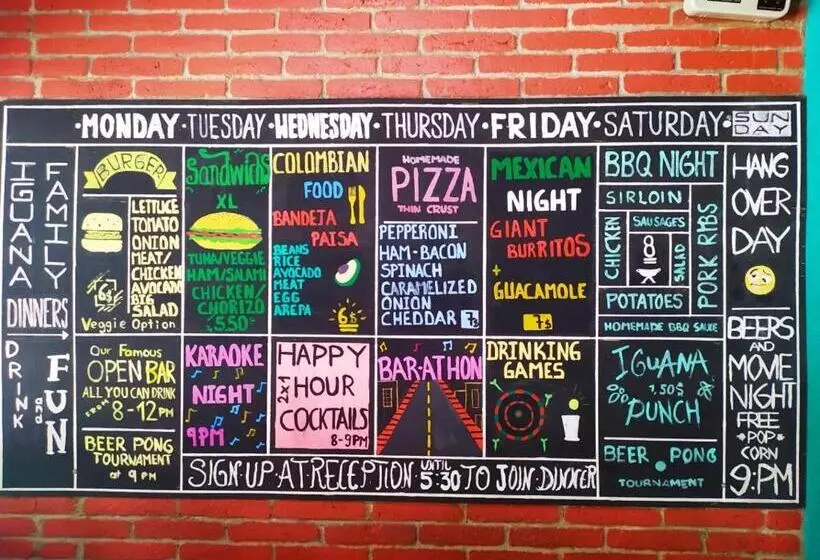 ·MONDAY·TUESDAY·WEDNESDAY·THURSDAY·FRIDAY·SATURDAY·SUN DAY
IGUANA
FAMILY
DINNERS
BURGER
LETTUCE
TOMATO
ONION
MEAT/
CHICKEN
AVOCADO
BIG
SALAD
6$
Veggie Option
Sandwichs
XL
TUNA/VEGGIE
HAM/SALAMI
CHICKEN/
CHORIZO
5.50
COLOMBIAN
FOOD
BANDEJA
PAISA
BEANS
RICE
AVOCADO
MEAT
EGG
AREPA
6$
HOMEMADE
PIZZA
THIN CRUST
PEPPERONI
HAM-BACON
SPINACH
CARAMELIZED
ONION
CHEDDAR 7$
MEXICAN
NIGHT
GIANT
BURRITOS
+
GUACAMOLE
7$
BBQ NIGHT
SIRLOIN
CHICKEN
SAUSAGES
8
SALAD
PORK RIBS
POTATOES
HOMEMADE BBQ SAUCE
HANG
OVER
DAY
BEERS
AND
MOVIE
NIGHT
FREE
•POP•
CORN
9:PM
DRINK
and
FUN
OUR FAMOUS
OPEN BAR
ALL YOU CAN DRINK
FROM 8-12PM
BEER PONG
TOURNAMENT
at 9 PM
KARAOKE
NIGHT
9PM
HAPPY
2x1 HOUR
COCKTAILS
8-9PM
BAR-ATHON
DRINKING
GAMES
IGUANA
1,50$
PUNCH
BEER PONG
TOURNAMENT
SIGN·UP·AT·RECEPTION·UNTIL 5:30 TO JOIN·DINNER